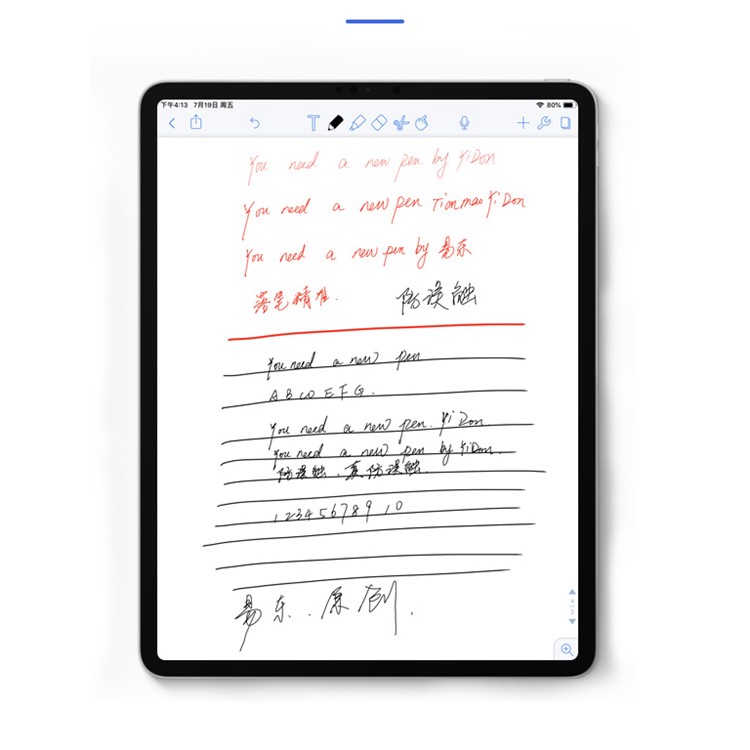 下午4:13 7月19日 周五 80%
T
You need a new pen by YiDon
You need a new pen Tianmao YiDon
You need a new pen by 易东
落笔精准. 防误触
You need a new pen
A B C D E F G .
You need a new pen. Yi Don
You need a new pen by YiDon.
防误触、真防误触
1 2 3 4 5 6 7 8 9 10
易东.原创.